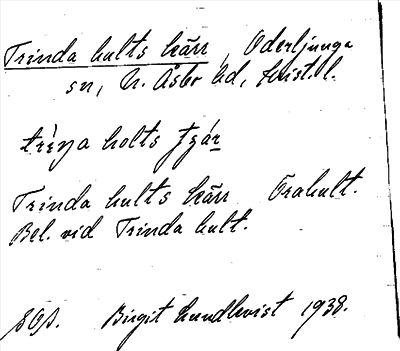 Trinda hults kärr, Oderljunga
sn, N. Åsbo hd, Krist. l.
Trinda hults kärr Örahult.
Bel. vid Trinda hult.
Birgit Lundkvist 1938.